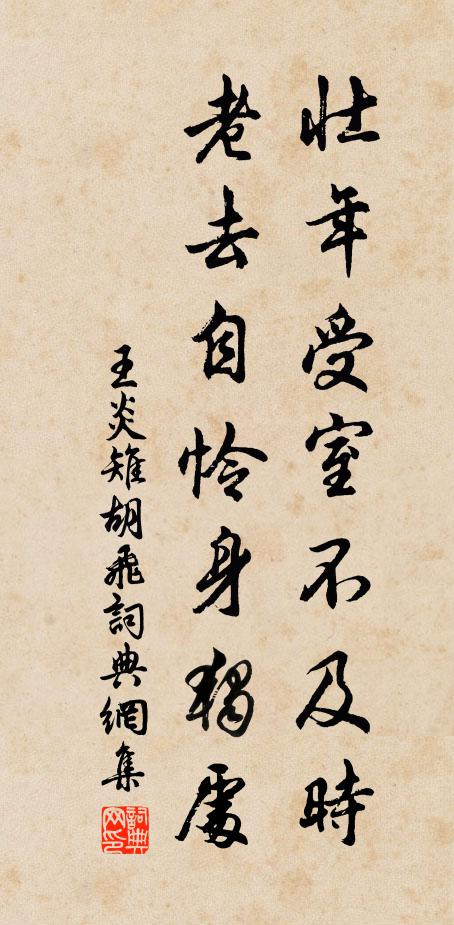 壯年受室不及時
老去自怜身獨處
王炎雉胡飛詞典網集
詞典网印